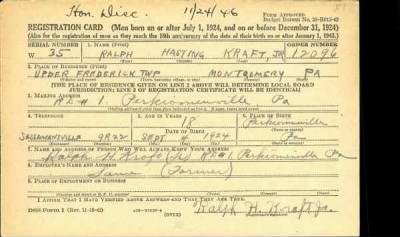 Hon. Disc. 11/24/46
FORM APPROVED
REGISTRATION CARD (Men born on or after July 1, 1924, and on or before December 31, 1924)
(Also for the registration of men as they reach the 18th anniversary of the date of their birth on or after January 1, 1943.)
SERIAL NUMBER 1. NAME (Print) ORDER NUMBER
W 35 RALPH HASTING KRAFT, JR. 12096
2. PLACE OF RESIDENCE (Print)
UPPER FREDERICK TWP MONTGOMERY PA
[THE PLACE OF RESIDENCE GIVEN ON LINE 2 ABOVE WILL DETERMINE LOCAL BOARD
JURISDICTION; LINE 2 OF REGISTRATION CERTIFICATE WILL BE IDENTICAL]
3. MAILING ADDRESS
R.D. # 1. Perkiomenville Pa
4. TELEPHONE 5. AGE IN YEARS 6. PLACE OF BIRTH
18 Perkiomenville
DATE OF BIRTH
9R22 SEPT 4 1924 Pa.
7. NAME AND ADDRESS OF PERSON WHO WILL ALWAYS KNOW YOUR ADDRESS
Ralph H. Kraft RD #1 Perkiomenville Pa
8. EMPLOYER'S NAME AND ADDRESS
Same (Farmer)
9. PLACE OF EMPLOYMENT OR BUSINESS
I AFFIRM THAT I HAVE VERIFIED ABOVE ANSWERS AND THAT THEY ARE TRUE.
(OVER) Ralph H. Kraft Jr.